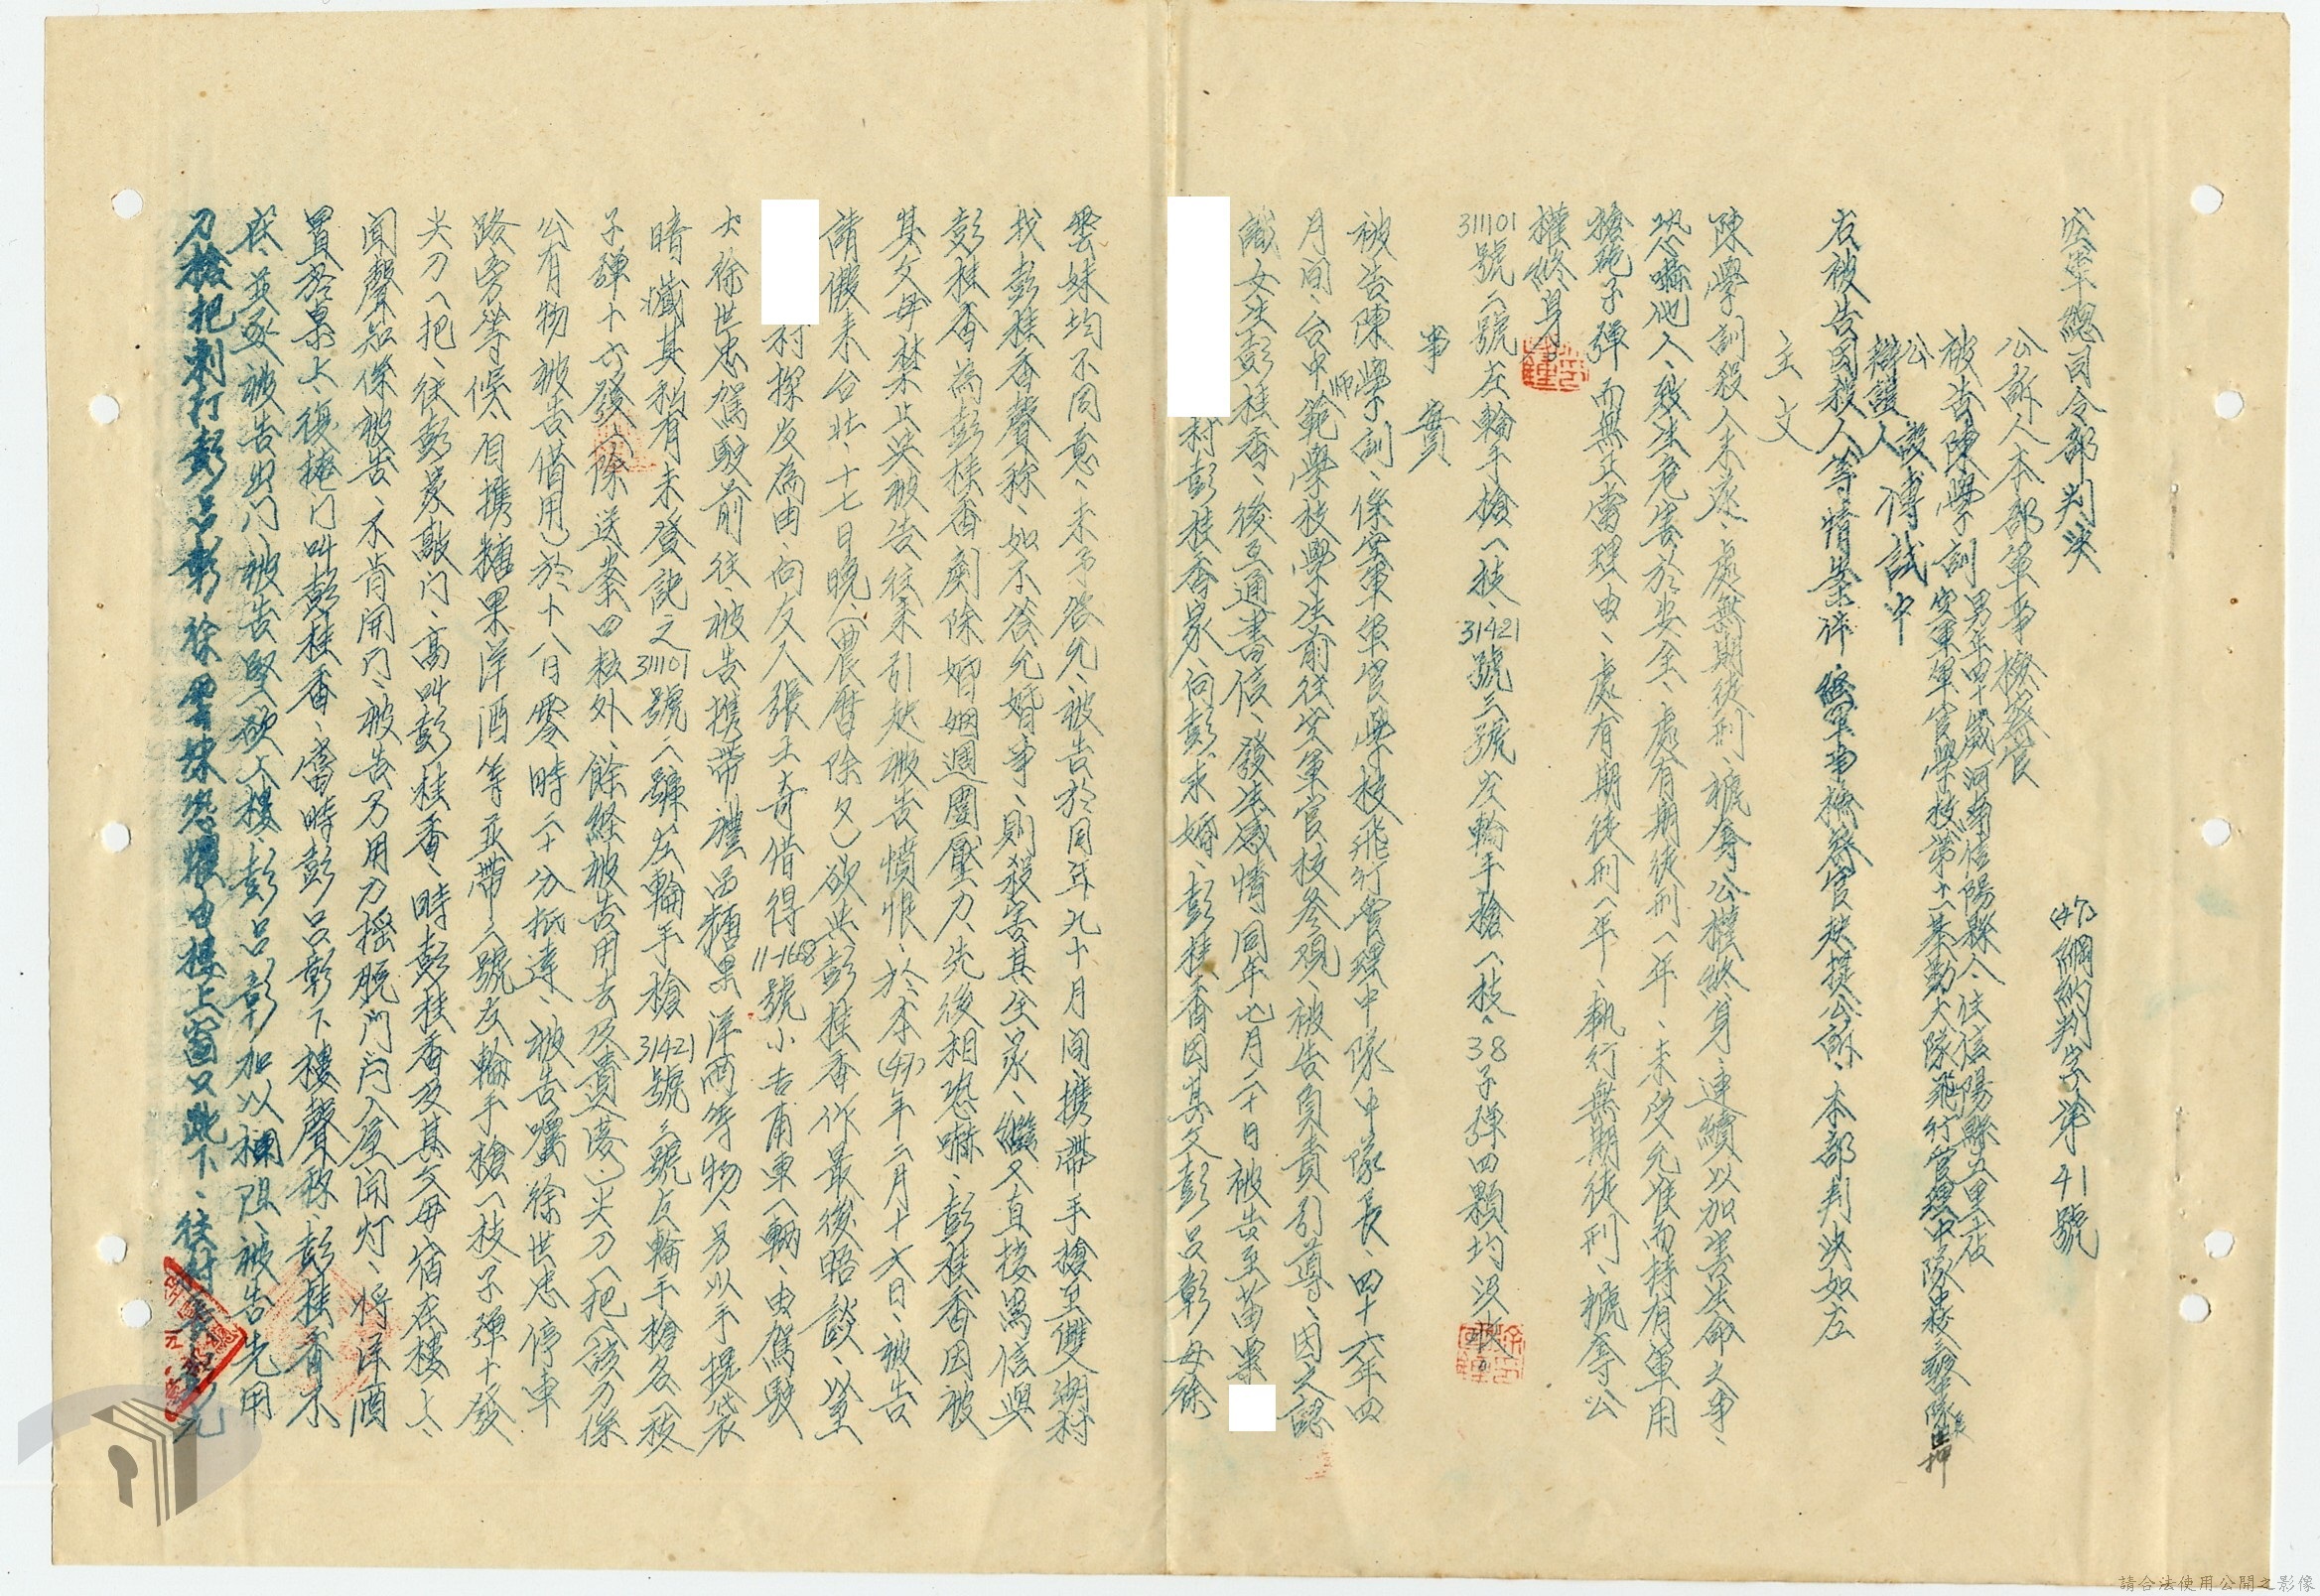 空軍總司令部判決
(47)綱納判字第41號
公訴人本部軍事檢察官
被告陳學訓 男年四十歲河南信陽縣人、住信陽縣五里店
空軍軍官學校第十一基勤大隊飛行管理中隊中隊長在押
公設
辯護人 傅試中
右被告因殺人等情案件、經軍事檢察官起提公訴、本部判決如左
主文
陳學訓殺人未遂、處無期徒刑、褫奪公權終身、連續以加害生命之事、
恐嚇他人、致生危害於安全、處有期徒刑一年、未受允准而持有軍用
槍砲子彈而無正當理由、處有期徒刑一年、執行無期徒刑、褫奪公
權終身。
311101號二號左輪手槍一枝、31421號三號左輪手槍一枝、38子彈四顆均沒收。
事實
被告陳學訓、係空軍軍官學校飛行管理中隊中隊長、四十六年四
月間、台中師範學校學生前往空軍官校參觀、被告負責引導、因之認
識女生彭桂香、後互通書信、發生感情、同年七月二十日被告至苗栗
村彭桂香家、向彭求婚、彭桂香因其父彭呂彰母徐
雲妹均不同意、未予答允、被告於同年九十月間、攜帶手槍至雙湖村
找彭桂香聲稱、如不答允婚事、則殺害其全家、繼又直接寫信與
彭桂香為彭桂香剷除婚姻週圍壓力、先後相恐嚇、彭桂香因被
其父母禁止與被告往來引起被告憤恨、於本(47)年二月十六日、被告
請假來台北、十七日晚、(農曆除夕)欲與彭桂香作最後晤談、以至
村探友為由、向友人張士奇借得11-1668號小吉甫車一輛、由駕駛
士徐世忠駕駛前往、被告攜帶禮品糖果洋酒等物、另以手提袋
暗藏其私有未登記之311101號二號左輪手槍31421號三號左輪手槍各一枝
子彈十六發(除送案四粒外、餘經被告用去及賣淩)尖刀一把(該刀係
公有物被告借用)於十八日零時二十分抵達、被告囑徐世忠停車
路旁等候、自攜糖果洋酒等並帶二號左輪手槍一枝子彈十發
尖刀一把、往彭家敲门、高叫彭桂香、時彭桂香及其父母宿在樓上、
聞聲知係被告、不肯開门、被告乃用力搖脫门闩入室開灯、將洋酒
置於桌上、復掩门叫彭桂香、當時彭呂彰下樓聲稱、彭桂香不
在、並逐被告出门、被告堅欲上樓、彭呂彰加以攔阻、被告先用
刀槍把刺打彭呂彰、徐雲妹恐懼由樓上窗口跳下、往村長彭元
請合法使用公開之影像